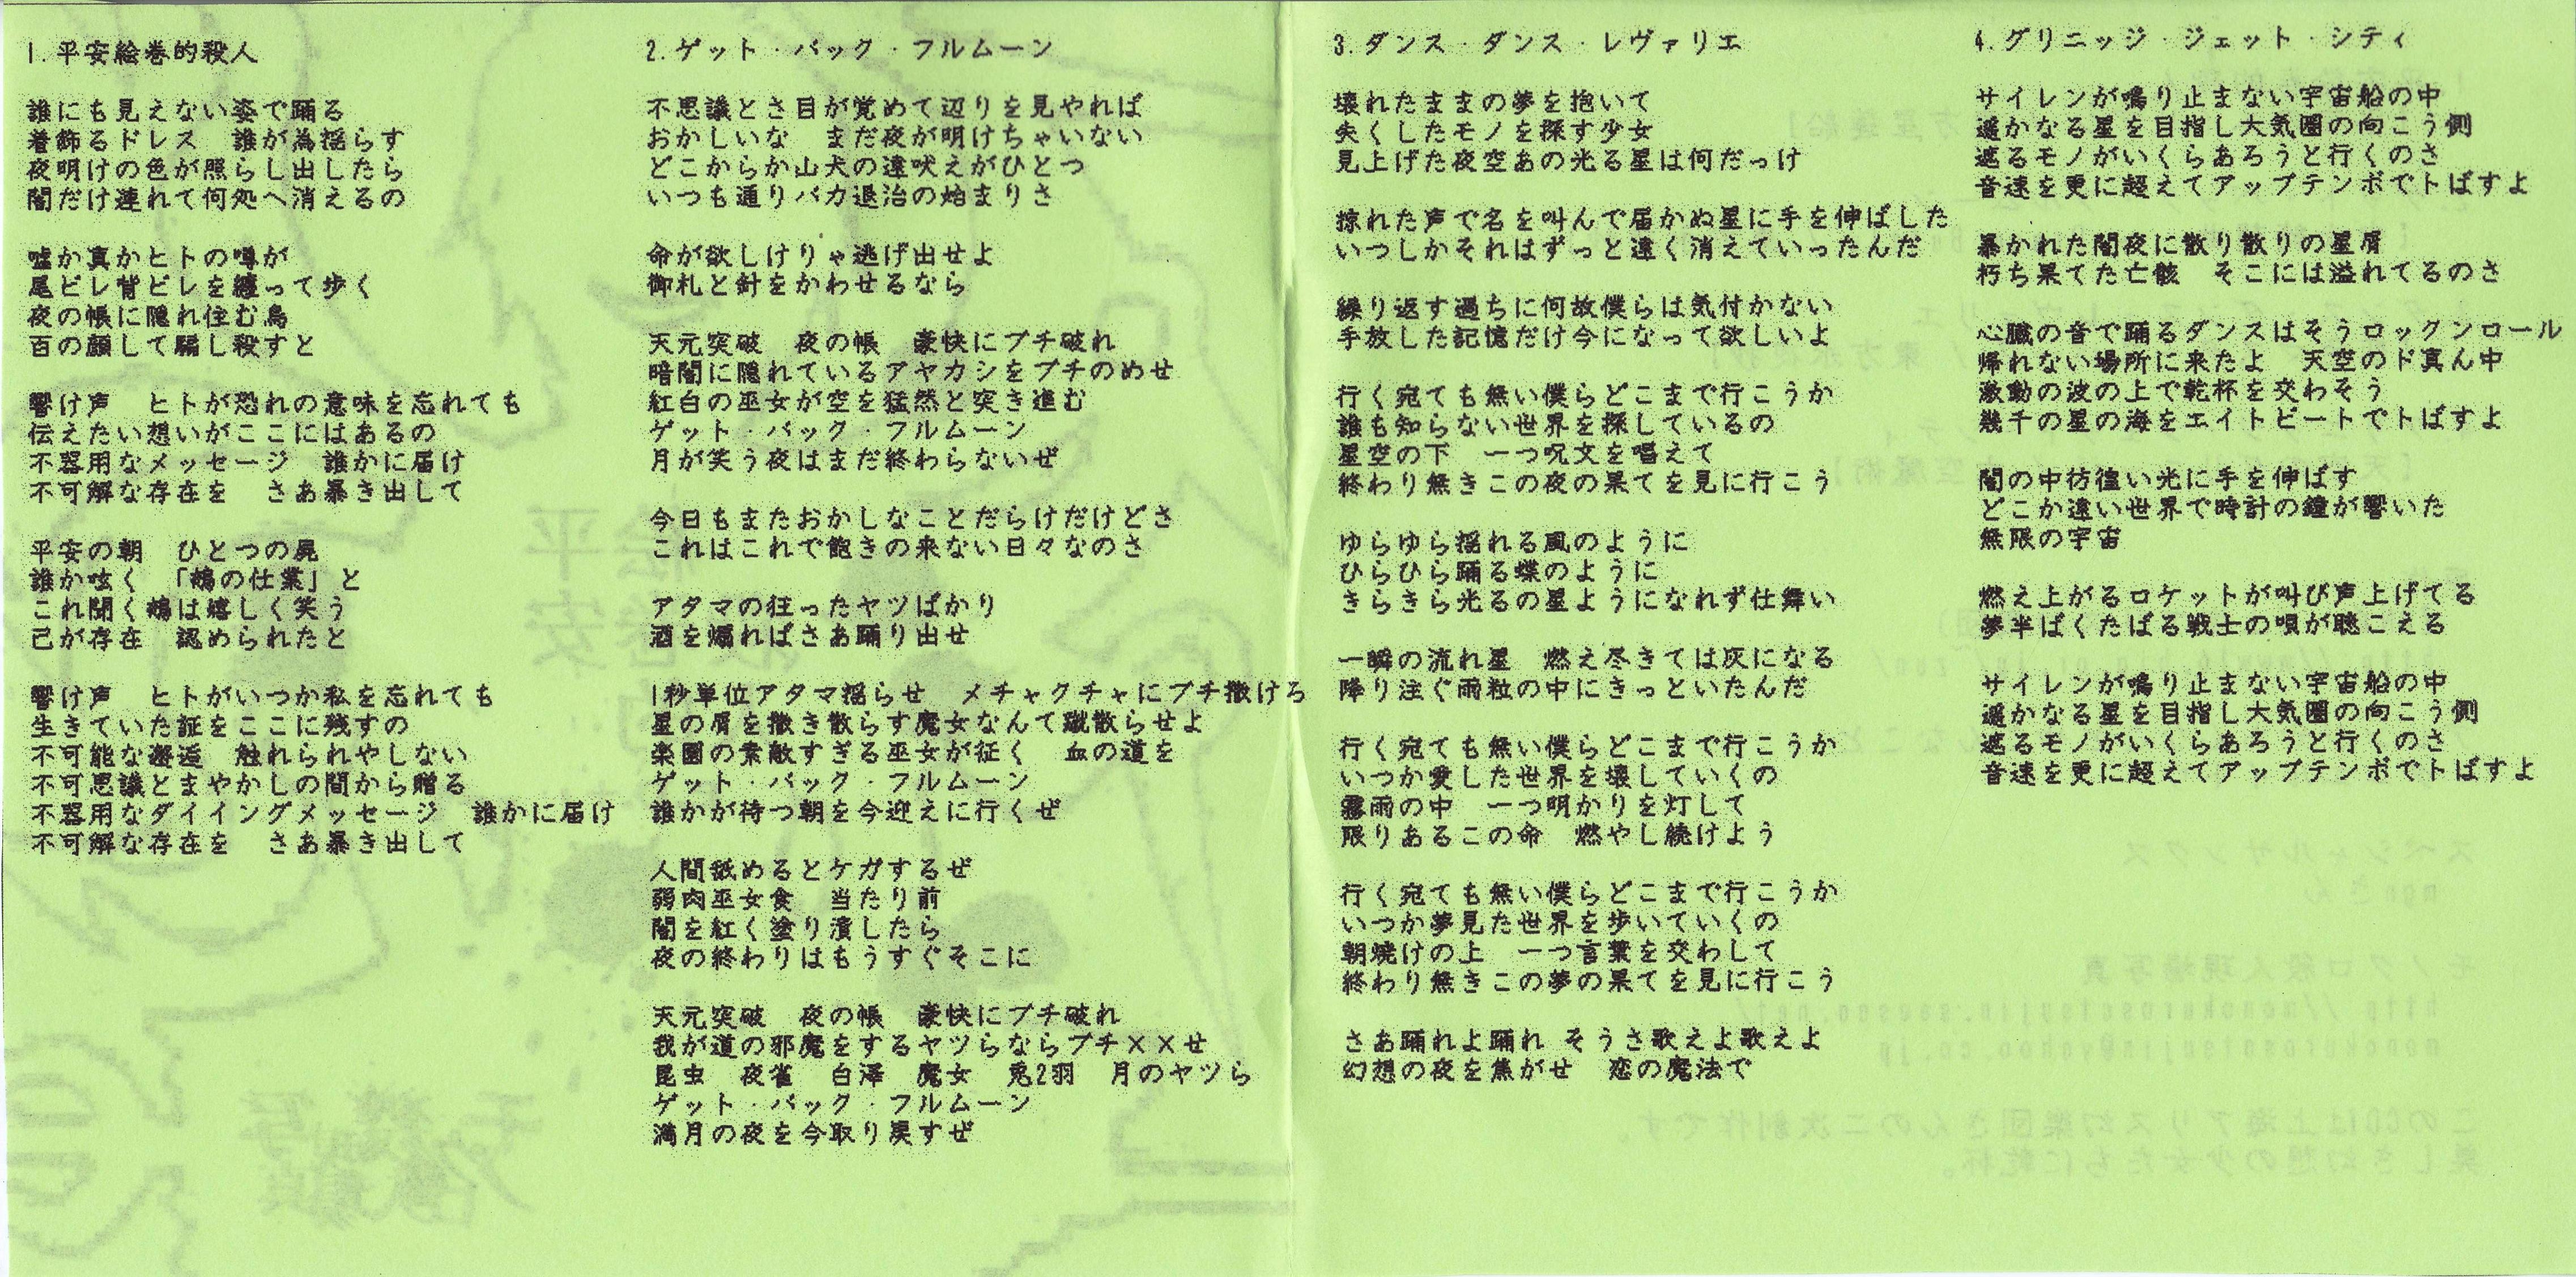 1.平安絵巻的殺人

誰にも見えない姿で踊る
着飾るドレス　誰が為揺らす
夜明けの色が照らし出したら
闇だけ連れて何処へ消えるの

嘘か真かヒトの噂が
尾ビレ背ビレを纏って歩く
夜の帳に隠れ住む鳥
百の顔して騙し殺すと

響け声　ヒトが恐れの意味を忘れても
伝えたい想いがここにはあるの
不器用なメッセージ　誰かに届け
不可解な存在を　さあ暴き出して

平安の朝　ひとつの屍
誰か呟く　「鵺の仕業」と
これ聞く鵺は嬉しく笑う
己が存在　認められたと

響け声　ヒトがいつか私を忘れても
生きていた証をここに残すの
不可能な邂逅　触れられやしない
不可思議とまやかしの間から贈る
不器用なダイイングメッセージ　誰かに届け
不可解な存在を　さあ暴き出して

2.ゲット・バック・フルムーン

不思議とさ目が覚めて辺りを見やれば
おかしいな　まだ夜が明けちゃいない
どこからか山犬の遠吠えがひとつ
いつも通りバカ退治の始まりさ

命が欲しけりゃ逃げ出せよ
御札と針をかわせるなら

天元突破　夜の帳　豪快にブチ破れ
暗闇に隠れているアヤカシをブチのめせ
紅白の巫女が空を猛然と突き進む
ゲット・バック・フルムーン
月が笑う夜はまだ終わらないぜ

今日もまたおかしなことだらけだけどさ
これはこれで飽きの来ない日々なのさ

アタマの狂ったヤツばかり
酒を煽ればさあ踊り出せ

1秒単位アタマ揺らせ　メチャクチャにブチ撒けろ
星の屑を撒き散らす魔女なんて蹴散らせよ
楽園の素敵すぎる巫女が征く　血の道を
ゲット・バック・フルムーン
誰かが待つ朝を今迎えに行くぜ

人間舐めるとケガするぜ
弱肉巫女食　当たり前
闇を紅く塗り潰したら
夜の終わりはもうすぐそこに

天元突破　夜の帳　豪快にブチ破れ
我が道の邪魔をするヤツらならブチ××せ
昆虫　夜雀　白澤　魔女　兎2羽　月のヤツら
ゲット・バック・フルムーン
満月の夜を今取り戻すぜ

3.ダンス・ダンス・レヴァリエ

壊れたままの夢を抱いて
失くしたモノを探す少女
見上げた夜空あの光る星は何だっけ

掠れた声で名を叫んで届かぬ星に手を伸ばした
いつしかそれはずっと遠く消えていったんだ

繰り返す過ちに何故僕らは気付かない
手放した記憶だけ今になって欲しいよ

行く宛ても無い僕らどこまで行こうか
誰も知らない世界を探しているの
星空の下　一つ呪文を唱えて
終わり無きこの夜の果てを見に行こう

ゆらゆら揺れる風のように
ひらひら踊る蝶のように
きらきら光るの星ようになれず仕舞い

一瞬の流れ星　燃え尽きては灰になる
降り注ぐ雨粒の中にきっといたんだ

行く宛ても無い僕らどこまで行こうか
いつか愛した世界を壊していくの
霧雨の中　一つ明かりを灯して
限りあるこの命　燃やし続けよう

行く宛ても無い僕らどこまで行こうか
いつか夢見た世界を歩いていくの
朝焼けの上　一つ言葉を交わして
終わり無きこの夢の果てを見に行こう

さあ踊れよ踊れ そうさ歌えよ歌えよ
幻想の夜を焦がせ　恋の魔法で

4.グリニッジ・ジェット・シティ

サイレンが鳴り止まない宇宙船の中
遥かなる星を目指し大気圏の向こう側
遮るモノがいくらあろうと行くのさ
音速を更に超えてアップテンポでトばすよ

暴かれた闇夜に散り散りの星屑
朽ち果てた亡骸　そこには溢れてるのさ

心臓の音で踊るダンスはそうロックンロール
帰れない場所に来たよ　天空のド真ん中
激動の波の上で乾杯を交わそう
幾千の星の海をエイトビートでトばすよ

闇の中彷徨い光に手を伸ばす
どこか遠い世界で時計の鐘が響いた
無限の宇宙

燃え上がるロケットが叫び声上げてる
夢半ばくたばる戦士の唄が聴こえる

サイレンが鳴り止まない宇宙船の中
遥かなる星を目指し大気圏の向こう側
遮るモノがいくらあろうと行くのさ
音速を更に超えてアップテンポでトばすよ